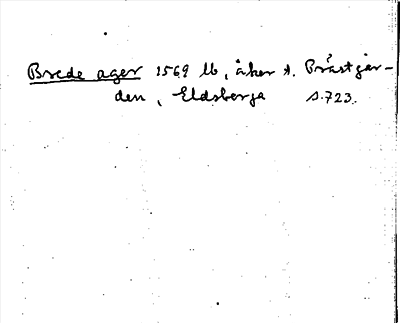 Brede ager 1569 lb, åker t. Prästgår-
den, Eldsberga s. 723.